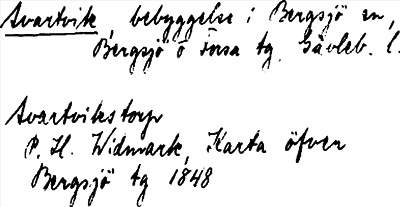 Svartvik, bebyggelse i Bergsjö sn,
Bergsjö o Forsa tg, Gävleb. l.
Svartvikstorp
P. H. Widmark, Karta öfver
Bergsjö tg 1848